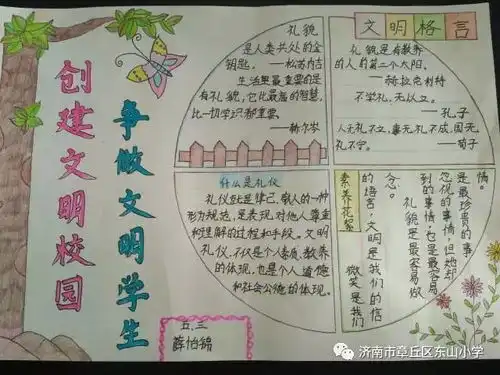 创建文明校园
争做文明学生
礼貌
是人类共处的金
钥匙。——松苏内吉
生活里最重要的是
有礼貌，它比最高的智慧，
比一切学识都重要。
——赫尔岑
文明格言
礼貌是有教养
的人的第二个太阳。
——赫拉克利特
不学礼，无以立。
——孔子
人无礼不立，事无礼不成，国无
礼不宁。——荀子
什么是礼仪
礼仪就是律己、敬人的一种
形为规范，是表现对他人尊重
和理解的过程和手段。文明
礼仪，不仅是个人素质、教养
的体现，也是个人道德
和社会公德的体现。
素养花絮
微笑是我们
的语言，文明是我们的信
念。
礼貌是最容易做
到的事情，也是最容易
忽视的事情，但她却
是最珍贵的事
情。
五.三
薛怡锦
济南市章丘区东山小学